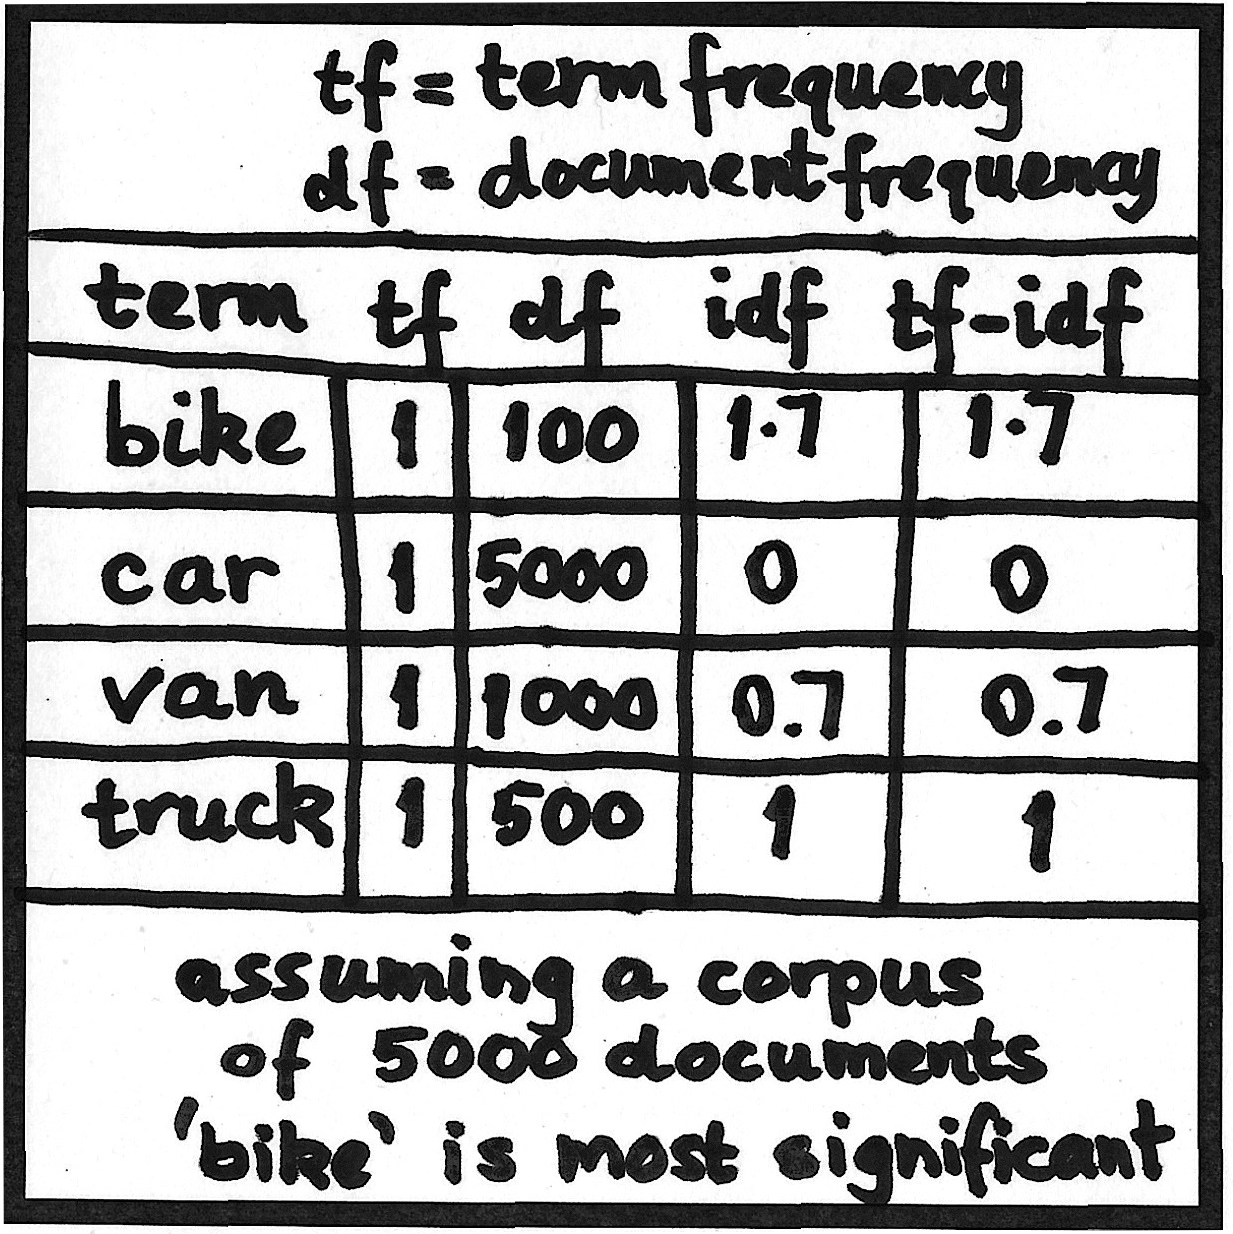 tf = term frequency
df = document frequency
term tf df idf tf-idf
bike 1 100 1.7 1.7
car 1 5000 0 0
van 1 1000 0.7 0.7
truck 1 500 1 1
assuming a corpus
of 5000 documents
'bike' is most significant